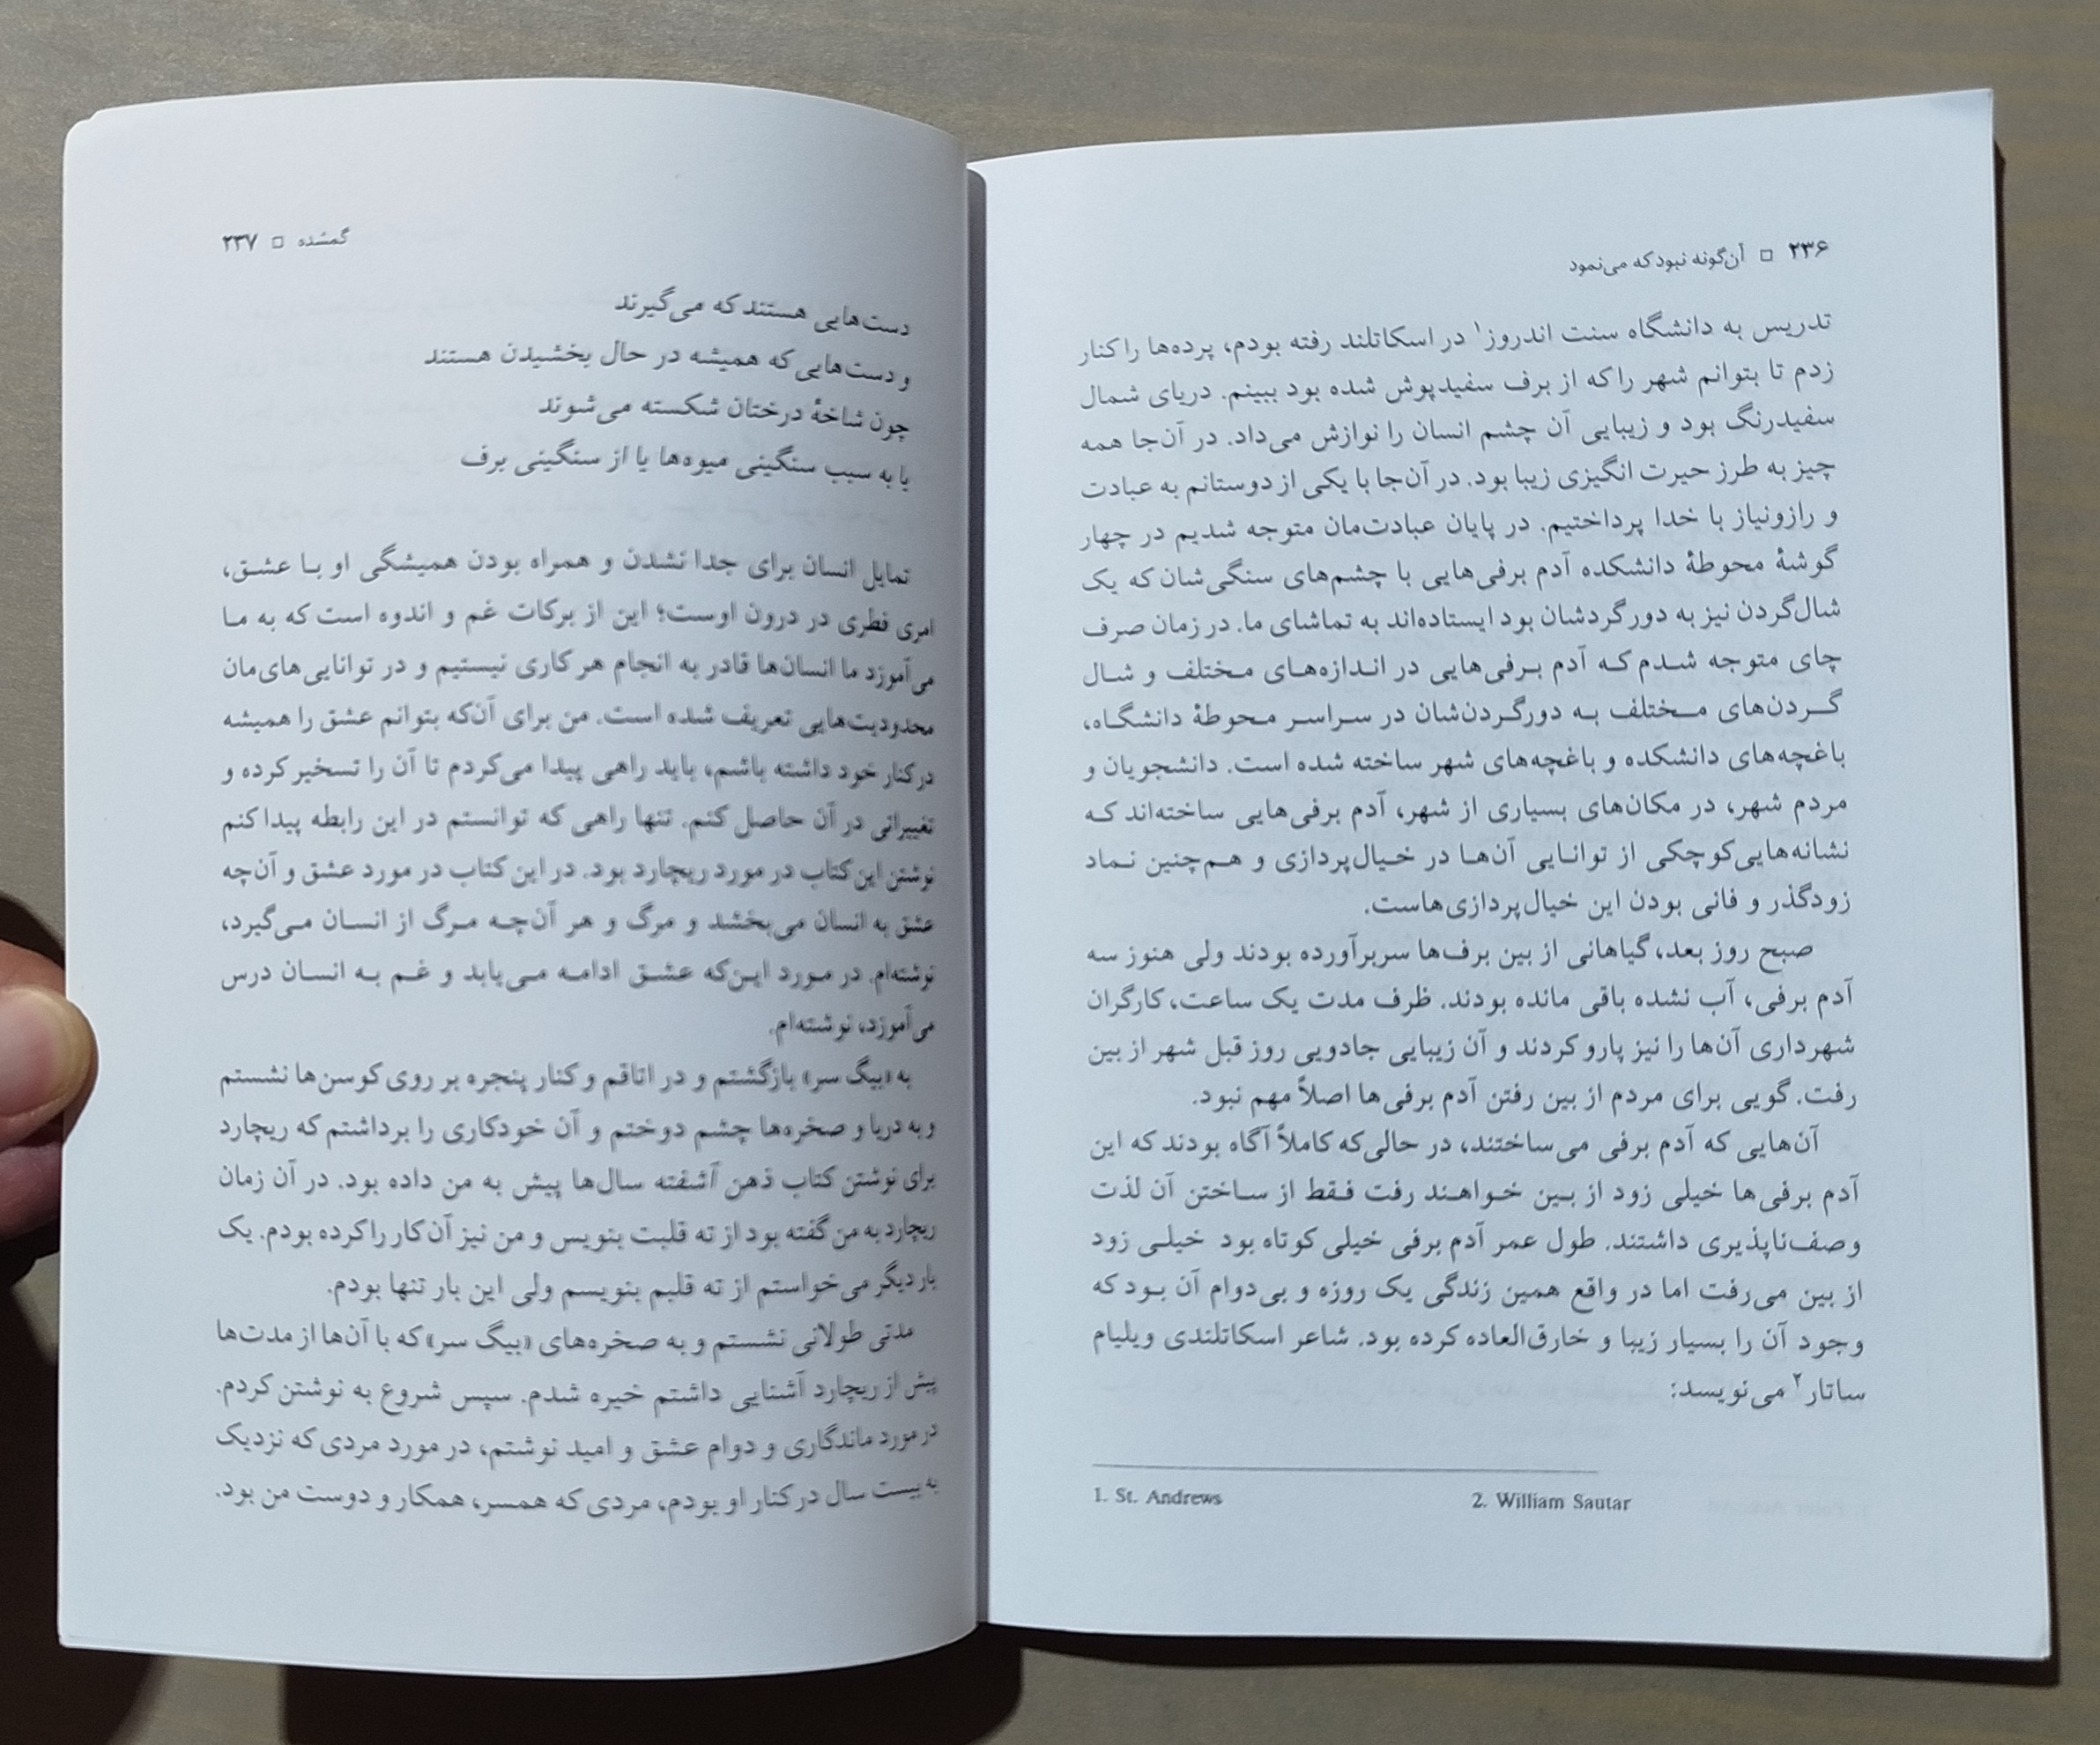 ۲۳۶ □ آن‌گونه نبود که می‌نمود
تدریس به دانشگاه سنت اندروز۱ در اسکاتلند رفته بودم، پرده‌ها را کنار
زدم تا بتوانم شهر را که از برف سفیدپوش شده بود ببینم. دریای شمال
سفیدرنگ بود و زیبایی آن چشم انسان را نوازش می‌داد. در آن‌جا همه
چیز به طرز حیرت انگیزی زیبا بود. در آن‌جا با یکی از دوستانم به عبادت
و رازونیاز با خدا پرداختیم. در پایان عبادت‌مان متوجه شدیم در چهار
گوشهٔ محوطهٔ دانشکده آدم برفی‌هایی با چشم‌های سنگی‌شان که یک
شال‌گردن نیز به دور گردشان بود ایستاده‌اند به تماشای ما. در زمان صرف
چای متوجه شدم که آدم برفی‌هایی در اندازه‌های مختلف و شال
گردن‌های مختلف به دورگردن‌شان در سراسر محوطهٔ دانشگاه،
باغچه‌های دانشکده و باغچه‌های شهر ساخته شده است. دانشجویان و
مردم شهر، در مکان‌های بسیاری از شهر، آدم برفی‌هایی ساخته‌اند که
نشانه‌هایی کوچکی از توانایی آن‌ها در خیال‌پردازی و هم‌چنین نماد
زودگذر و فانی بودن این خیال‌پردازی‌هاست.
صبح روز بعد، گیاهانی از بین برف‌ها سربرآورده بودند ولی هنوز سه
آدم برفی، آب نشده باقی مانده بودند. ظرف مدت یک ساعت، کارگران
شهرداری آن‌ها را نیز پارو کردند و آن زیبایی جادویی روز قبل شهر از بین
رفت. گویی برای مردم از بین رفتن آدم برفی‌ها اصلاً مهم نبود.
آن‌هایی که آدم برفی می‌ساختند، در حالی‌که کاملاً آگاه بودند که این
آدم برفی‌ها خیلی زود از بین خواهند رفت فقط از ساختن آن لذت
وصف‌ناپذیری داشتند. طول عمر آدم برفی خیلی کوتاه بود خیلی زود
از بین می‌رفت اما در واقع همین زندگی یک روزه و بی‌دوام آن بود که
وجود آن را بسیار زیبا و خارق‌العاده کرده بود. شاعر اسکاتلندی ویلیام
ساتار۲ می‌نویسد:
1. St. Andrews 2. William Sautar
گمشده □ ۲۳۷
دست‌هایی هستند که می‌گیرند
و دست‌هایی که همیشه در حال بخشیدن هستند
چون شاخهٔ درختان شکسته می‌شوند
یا به سبب سنگینی میوه‌ها یا از سنگینی برف
تمایل انسان برای جدا نشدن و همراه بودن همیشگی او با عشق،
امری فطری در درون اوست؛ این از برکات غم و اندوه است که به ما
می‌آموزد ما انسان‌ها قادر به انجام هر کاری نیستیم و در توانایی‌های‌مان
محدودیت‌هایی تعریف شده است. من برای آن‌که بتوانم عشق را همیشه
در کنار خود داشته باشم، باید راهی پیدا می‌کردم تا آن را تسخیر کرده و
تغییراتی در آن حاصل کنم. تنها راهی که توانستم در این رابطه پیدا کنم
نوشتن این کتاب در مورد ریچارد بود. در این کتاب در مورد عشق و آن‌چه
عشق به انسان می‌بخشد و مرگ و هر آن‌چه مرگ از انسان می‌گیرد،
نوشته‌ام. در مورد این‌که عشق ادامه می‌یابد و غم به انسان درس
می‌آموزد، نوشته‌ام.
به «بیگ سر» بازگشتم و در اتاقم و کنار پنجره بر روی کوسن‌ها نشستم
و به دریا و صخره‌ها چشم دوختم و آن خودکاری را برداشتم که ریچارد
برای نوشتن کتاب ذهن آشفته سال‌ها پیش به من داده بود. در آن زمان
ریچارد به من گفته بود از ته قلبت بنویس و من نیز آن کار را کرده بودم. یک
بار دیگر می‌خواستم از ته قلبم بنویسم ولی این بار تنها بودم.
مدتی طولانی نشستم و به صخره‌های «بیگ سر» که با آن‌ها از مدت‌ها
پیش از ریچارد آشنایی داشتم خیره شدم. سپس شروع به نوشتن کردم.
در مورد ماندگاری و دوام عشق و امید نوشتم، در مورد مردی که نزدیک
به بیست سال در کنار او بودم، مردی که همسر، همکار و دوست من بود.